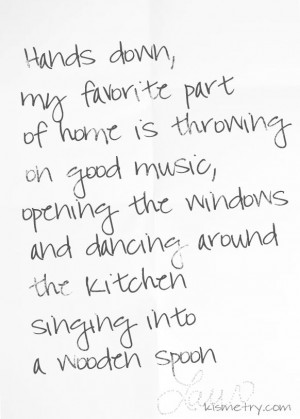 Hands down,
my favorite part
of home is throwing
on good music,
opening the windows
and dancing around
the kitchen
singing into
a wooden spoon
kismetry.com